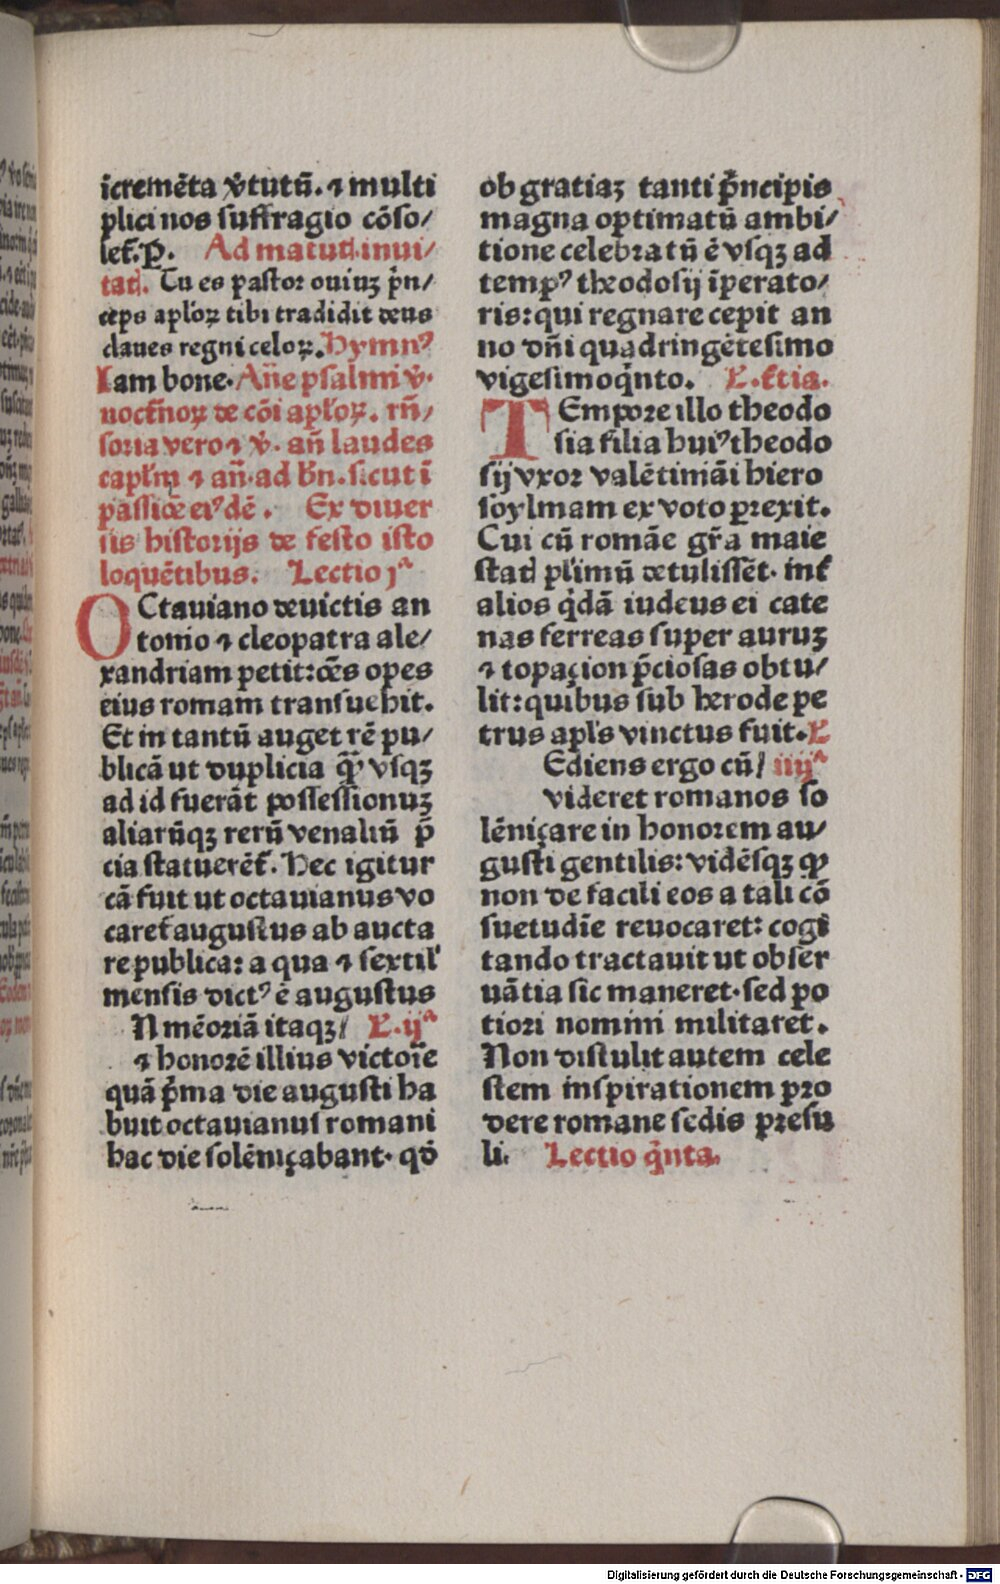 ĩcremēta v̾tutū. ⁊ multi
plici nos suffragio cōso/
let̛. P̲. Ad matuti. inui/
tati. Tu es pastor ouiuꝫ p̄n/
ceps apl'oꝝ tibi tradidit deus
claues regni celoꝝ. Hymnꝰ
Iam bone. An̄e psalmi v̾.
noct̛noꝝ de cōi apl'oꝝ. rn̄/
soria vero ⁊ v̾. an̄ laudes
capl'm ⁊ an̄. ad bn̄. sicut ĩ
passiōe eiꝰdē. Ex diuer
sis historijs de festo isto
loquētibus. Lectio jᵃ
OCtauiano deuictis an
tonio ⁊ cleopatra ale/
xandriam petit: oēs opes
eius romam transuehit.
Et in tantū auget rē pu/
blicā ut duplicia ꝙ̄ vsqꝫ
ad id fuerāt possessionuꝫ
aliarūqꝫ rerū venaliū p̄
cia statuerēt̛. Hec igitur
cā fuit ut octauianus vo
caret̛ augustus ab aucta
re publica: a qua ⁊ sextil'
mensis dictꝰ ē augustus
N mēoriā itaqꝫ/ L. ijᵃ
⁊ honorē illius victorīe
quā p̄ma die augusti ha
buit octauianus romani
hac die solēniçabant. qd̄
ob gratiaꝫ tanti p̄ncipis
magna optimatū ambi/
tione celebratū ē vsqꝫ ad
tempꝰ theodosij ĩperato/
ris: qui regnare cepit an
no dn̄i quadringētesimo
vigesimoq̄nto. L. t̛tia.
TEmpore illo theodo
sia filia huiꝰ theodo
sij vxor valētiniāi hiero
soylmam ex voto prexit.
Cui cū romāe gr̄a maie
stati pl'imū detulissēt. int̛
alios q̄dā iudeus ei cate
nas ferreas super auruꝫ
⁊ topaçion p̄ciosas obtu/
lit: quibus sub herode pe
trus apl's vinctus fuit. L
Ediens ergo cū/ iiijᵃ
videret romanos so
lēniçare in honorem au/
gusti gentilis: vidēsqꝫ ꝙ
non de facili eos a tali cō
suetudīe reuocaret: cogi
tando tractauit ut obser
uātia sic maneret. sed po
tiori nomini militaret.
Non distulit autem cele
stem inspirationem pro
dere romane sedis presu
li. Lectio q̄nta.
Digitalisierung gefördert durch die Deutsche Forschungsgemeinschaft - DFG